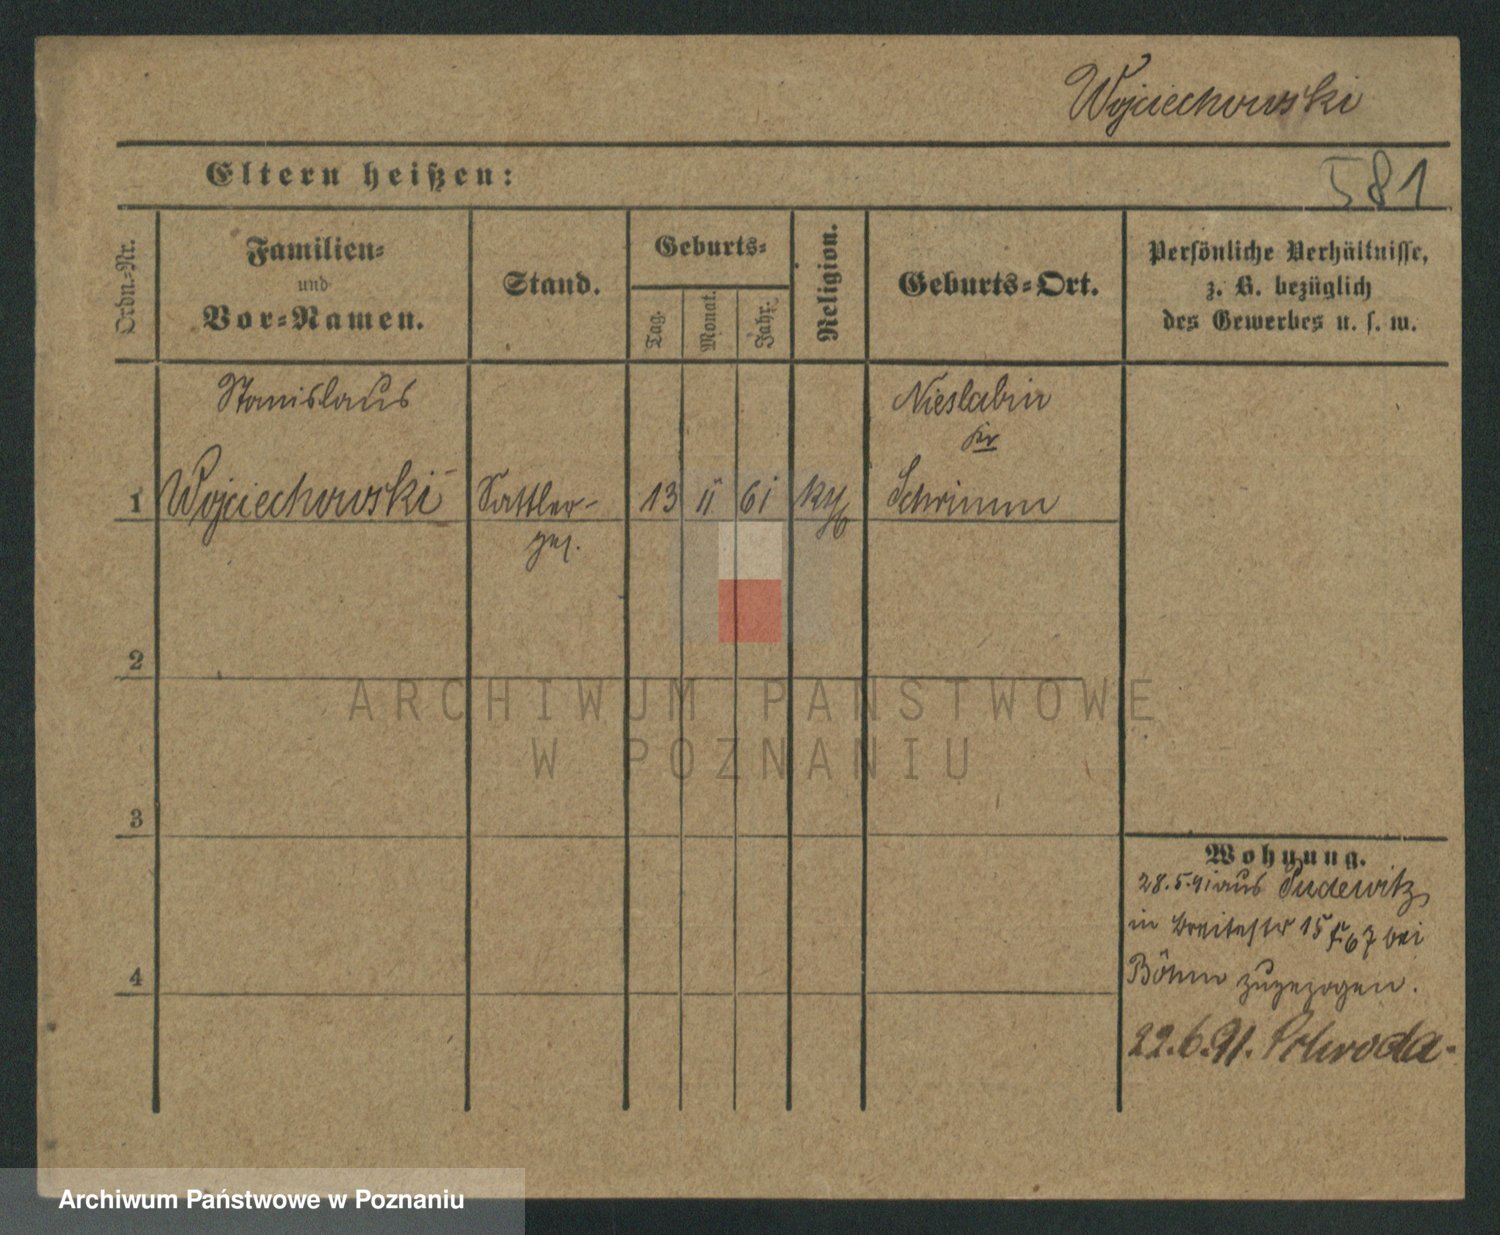 Wojciechowski
Eltern heißen:
581
Ordn.-Nr.
Familien-
und
Vor-Namen.
Stand.
Geburts-
Tag.
Monat.
Jahr.
Religion.
Geburts-Ort.
Persönliche Verhältnisse,
z. B. bezüglich
des Gewerbes u. s. w.
Stanislaus
Nieslabin
Kr
1 Wojciechowski Sattler- 13 11 61 Schrimm
ges.
2
3
4
Wohnung.
28.5.91 aus Pudewitz
in Breitestr 15 bei
Böhm zugezogen.
22.6.91. Schroda.
ARCHIWUM PAŃSTWOWE
W POZNANIU
Archiwum Państwowe w Poznaniu